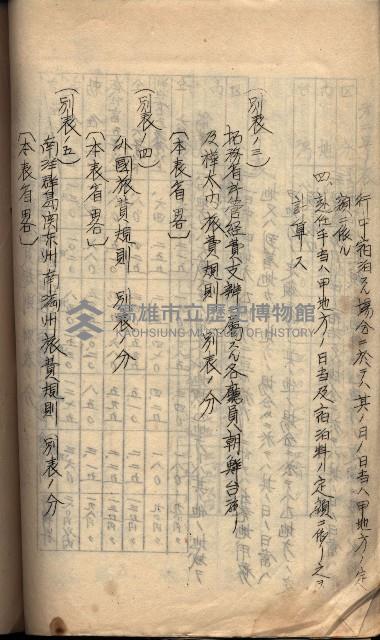 行中宿泊スル場合ニ於テハ其ノ日ノ日当ハ甲地方ノ定
額ニ依ル
四、赴任手当ハ甲地方ノ日当及宿泊料ノ定額ニ依リ之ヲ
計算ス
(別表ノ三)
拓務省所管経費支辨ニ属スル各廳員朝鮮台湾
及樺太内旅費規則 別表ノ分
〔本表省畧〕
(別表ノ四)
外國旅費規則 別表ノ分
〔本表省畧〕
(別表ノ五)
南洋群島関東州南満州旅費規則 別表ノ分
〔本表省畧〕
高雄市立歷史博物館
KAOHSIUNG MUSEUM OF HISTORY